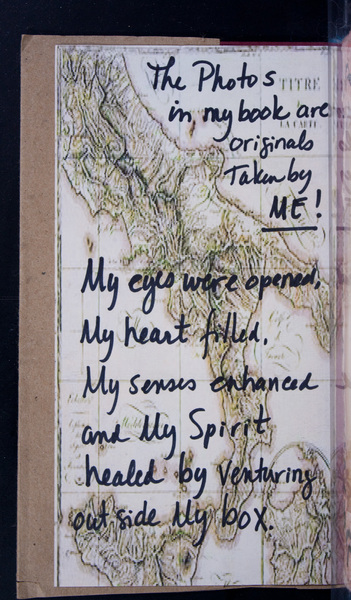 The Photos
TITRE
in my book are
LA CARTE.
originals
Taken by
ME!
My eyes were opened,
My heart filled,
My senses enhanced
and My Spirit
healed by Venturing
out side My box.